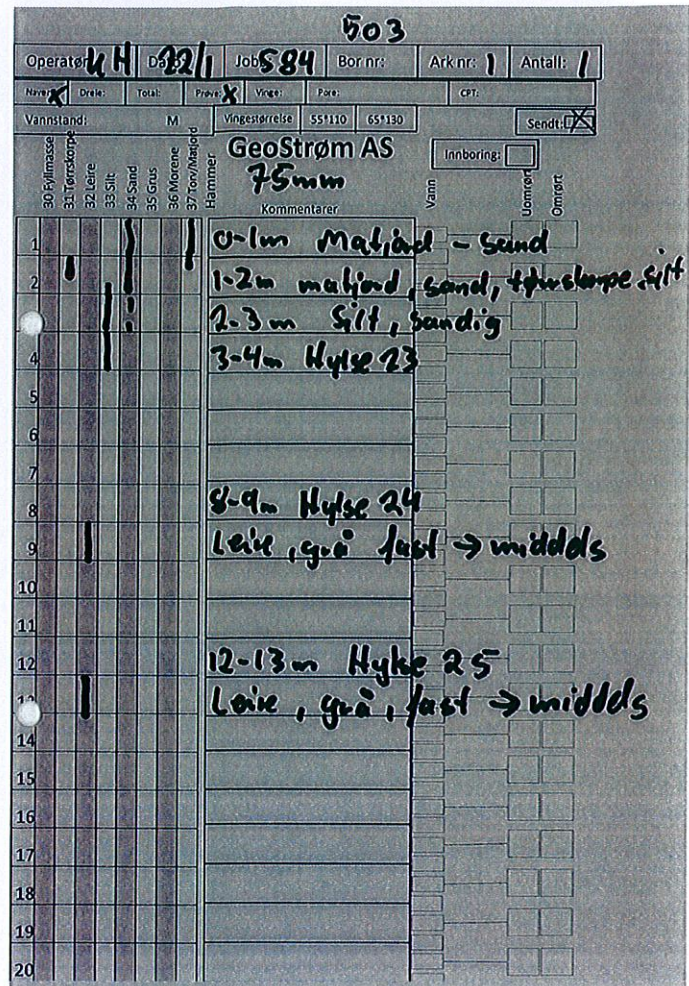 503
Operatør: KH Dato: 22/1 Jobb: 584 Bor nr: Ark nr: 1 Antall: 1
Naver: X Dreie: Total: Prøve: X Vinge: Pore: CPT:
Vannstand: M Vingestørrelse 55*110 65*130 Sendt: X
GeoStrøm AS
Innboring:
75mm
30 Fyllmasse
31 Tørrskorpe
32 Leire
33 Silt
34 Sand
35 Grus
36 Morene
37 Torv/Matjord
Hammer
Kommentarer
Vann
Uomrørt
Omrørt
1 0-1m Matjord - sand
2 1-2m matjord, sand, tørrskorpe, silt
2-3m Silt, sandig
4 3-4m Hylse 23
5
6
7
8 8-9m Hylse 24
9 Leire, grå fast → middels
10
11
12 12-13m Hylse 25
13 Leire, grå, fast → middels
14
15
16
17
18
19
20